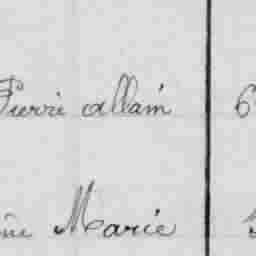 Pierre allain 6
Marie